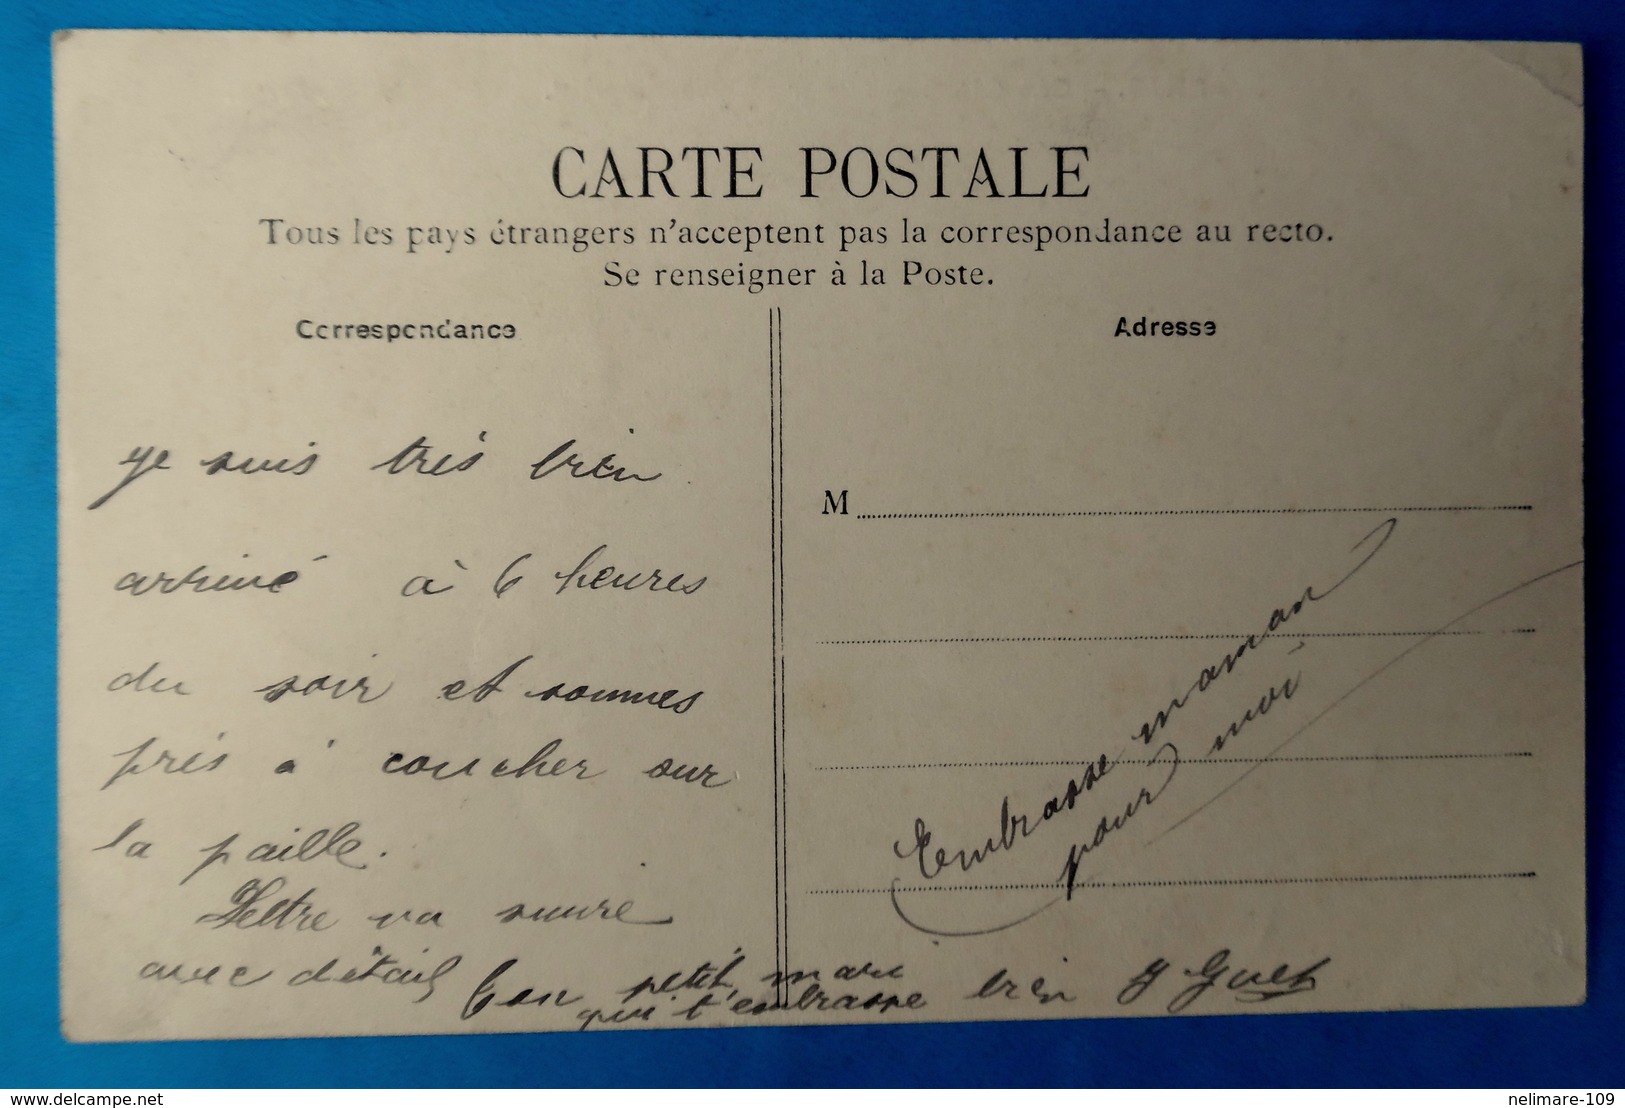 CARTE POSTALE
Tous les pays étrangers n'acceptent pas la correspondance au recto.
Se renseigner à la Poste.
Correspondance
je suis très bien
arrivé à 6 heures
du soir et sommes
près à coucher sur
la paille.
Lettre va suivre
avec détail
Ton petit mari
qui t'embrasse bien
Adresse
M
Embrasse maman
pour moi
www.delcampe.net
nelimare-109